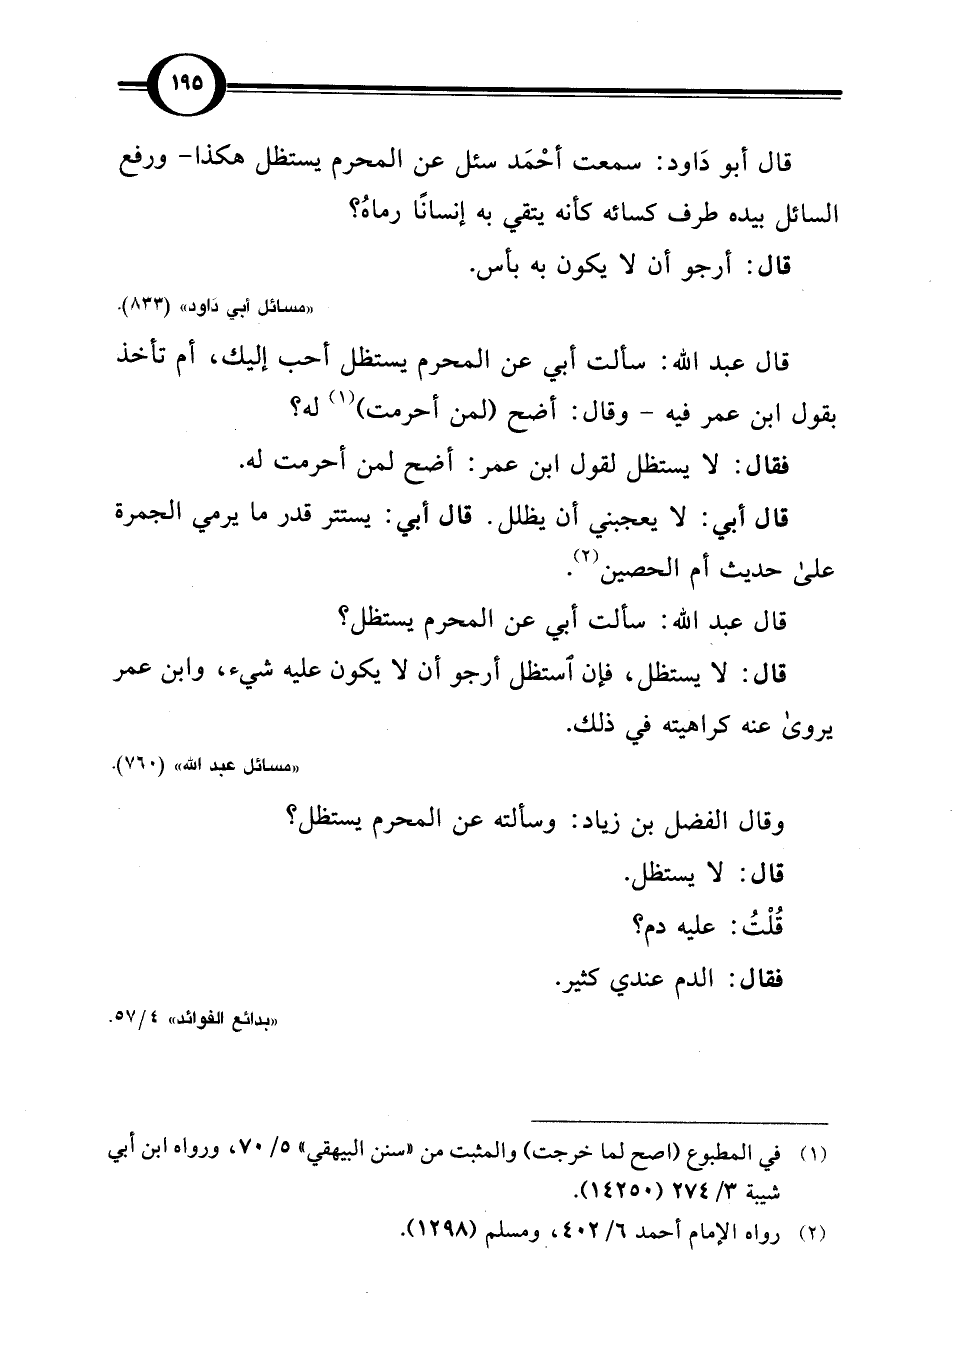 ١٩٥
قال أبو دَاود: سمعت أحْمَد سئل عن المحرم يستظل هكذا- ورفع
السائل بيده طرف كسائه كأنه يتقي به إنسانًا رماهُ؟
قال: أرجو أن لا يكون به بأس.
«مسائل أبي دَاود» (٨٣٣).
قال عبد الله: سألت أبي عن المحرم يستظل أحب إليك، أم تأخذ
بقول ابن عمر فيه - وقال: أضح (لمن أحرمت)(١) له؟
فقال: لا يستظل لقول ابن عمر: أضح لمن أحرمت له.
قال أبي: لا يعجبني أن يظلل. قال أبي: يستتر قدر ما يرمي الجمرة
علىٰ حديث أم الحصين(٢).
قال عبد الله: سألت أبي عن المحرم يستظل؟
قال: لا يستظل، فإن ٱستظل أرجو أن لا يكون عليه شيء، وابن عمر
يروىٰ عنه كراهيته في ذلك.
«مسائل عبد الله» (٧٦٠).
وقال الفضل بن زياد: وسألته عن المحرم يستظل؟
قال: لا يستظل.
قُلْتُ: عليه دم؟
فقال: الدم عندي كثير.
«بدائع الفوائد» ٤/ ٥٧.
(١) في المطبوع (اصح لما خرجت) والمثبت من «سنن البيهقي» ٥/ ٧٠، ورواه ابن أبي
شيبة ٣/ ٢٧٤ (١٤٢٥٠).
(٢) رواه الإمام أحمد ٦/ ٤٠٢، ومسلم (١٢٩٨).